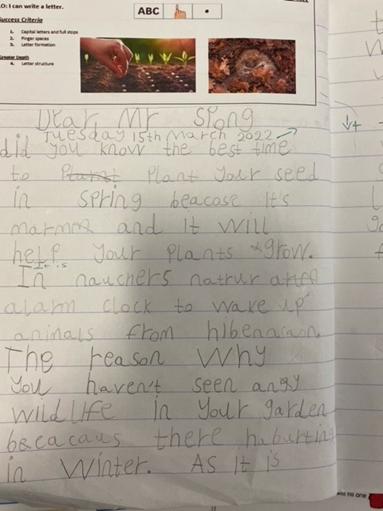 O: I can write a letter.
Success Criteria
1. Capital letters and full stops
2. Finger spaces
3. Letter formation
Greater Depth
4. Letter structure
ABC
Dear Mr Spong
Tuesday 15th March 2022
did you know the best time
to Plant your seed
in spring beacase It's
marmer and it will
help your plants grow.
It is
In nauchers natrur
alarm clock to wake up
animals from hibernaison
The reason Why
you haven't seen angy
wildlife in your garden
beacaus there haburting
in winter. As it is